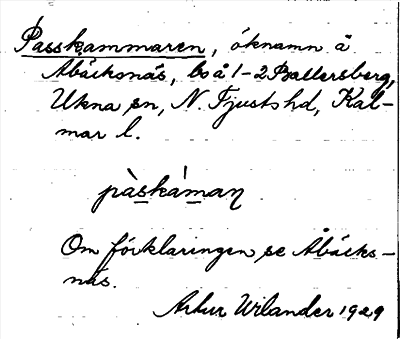 Passkammaren, öknamn å
Åbäcksnäs, bs å 1-2 Ballersberg,
Ukna sn, N. Tjusts hd, Kal-
mar l.
pàskáman
Om förklaringen se Åbäcks-
näs.
Artur Wilander 1929